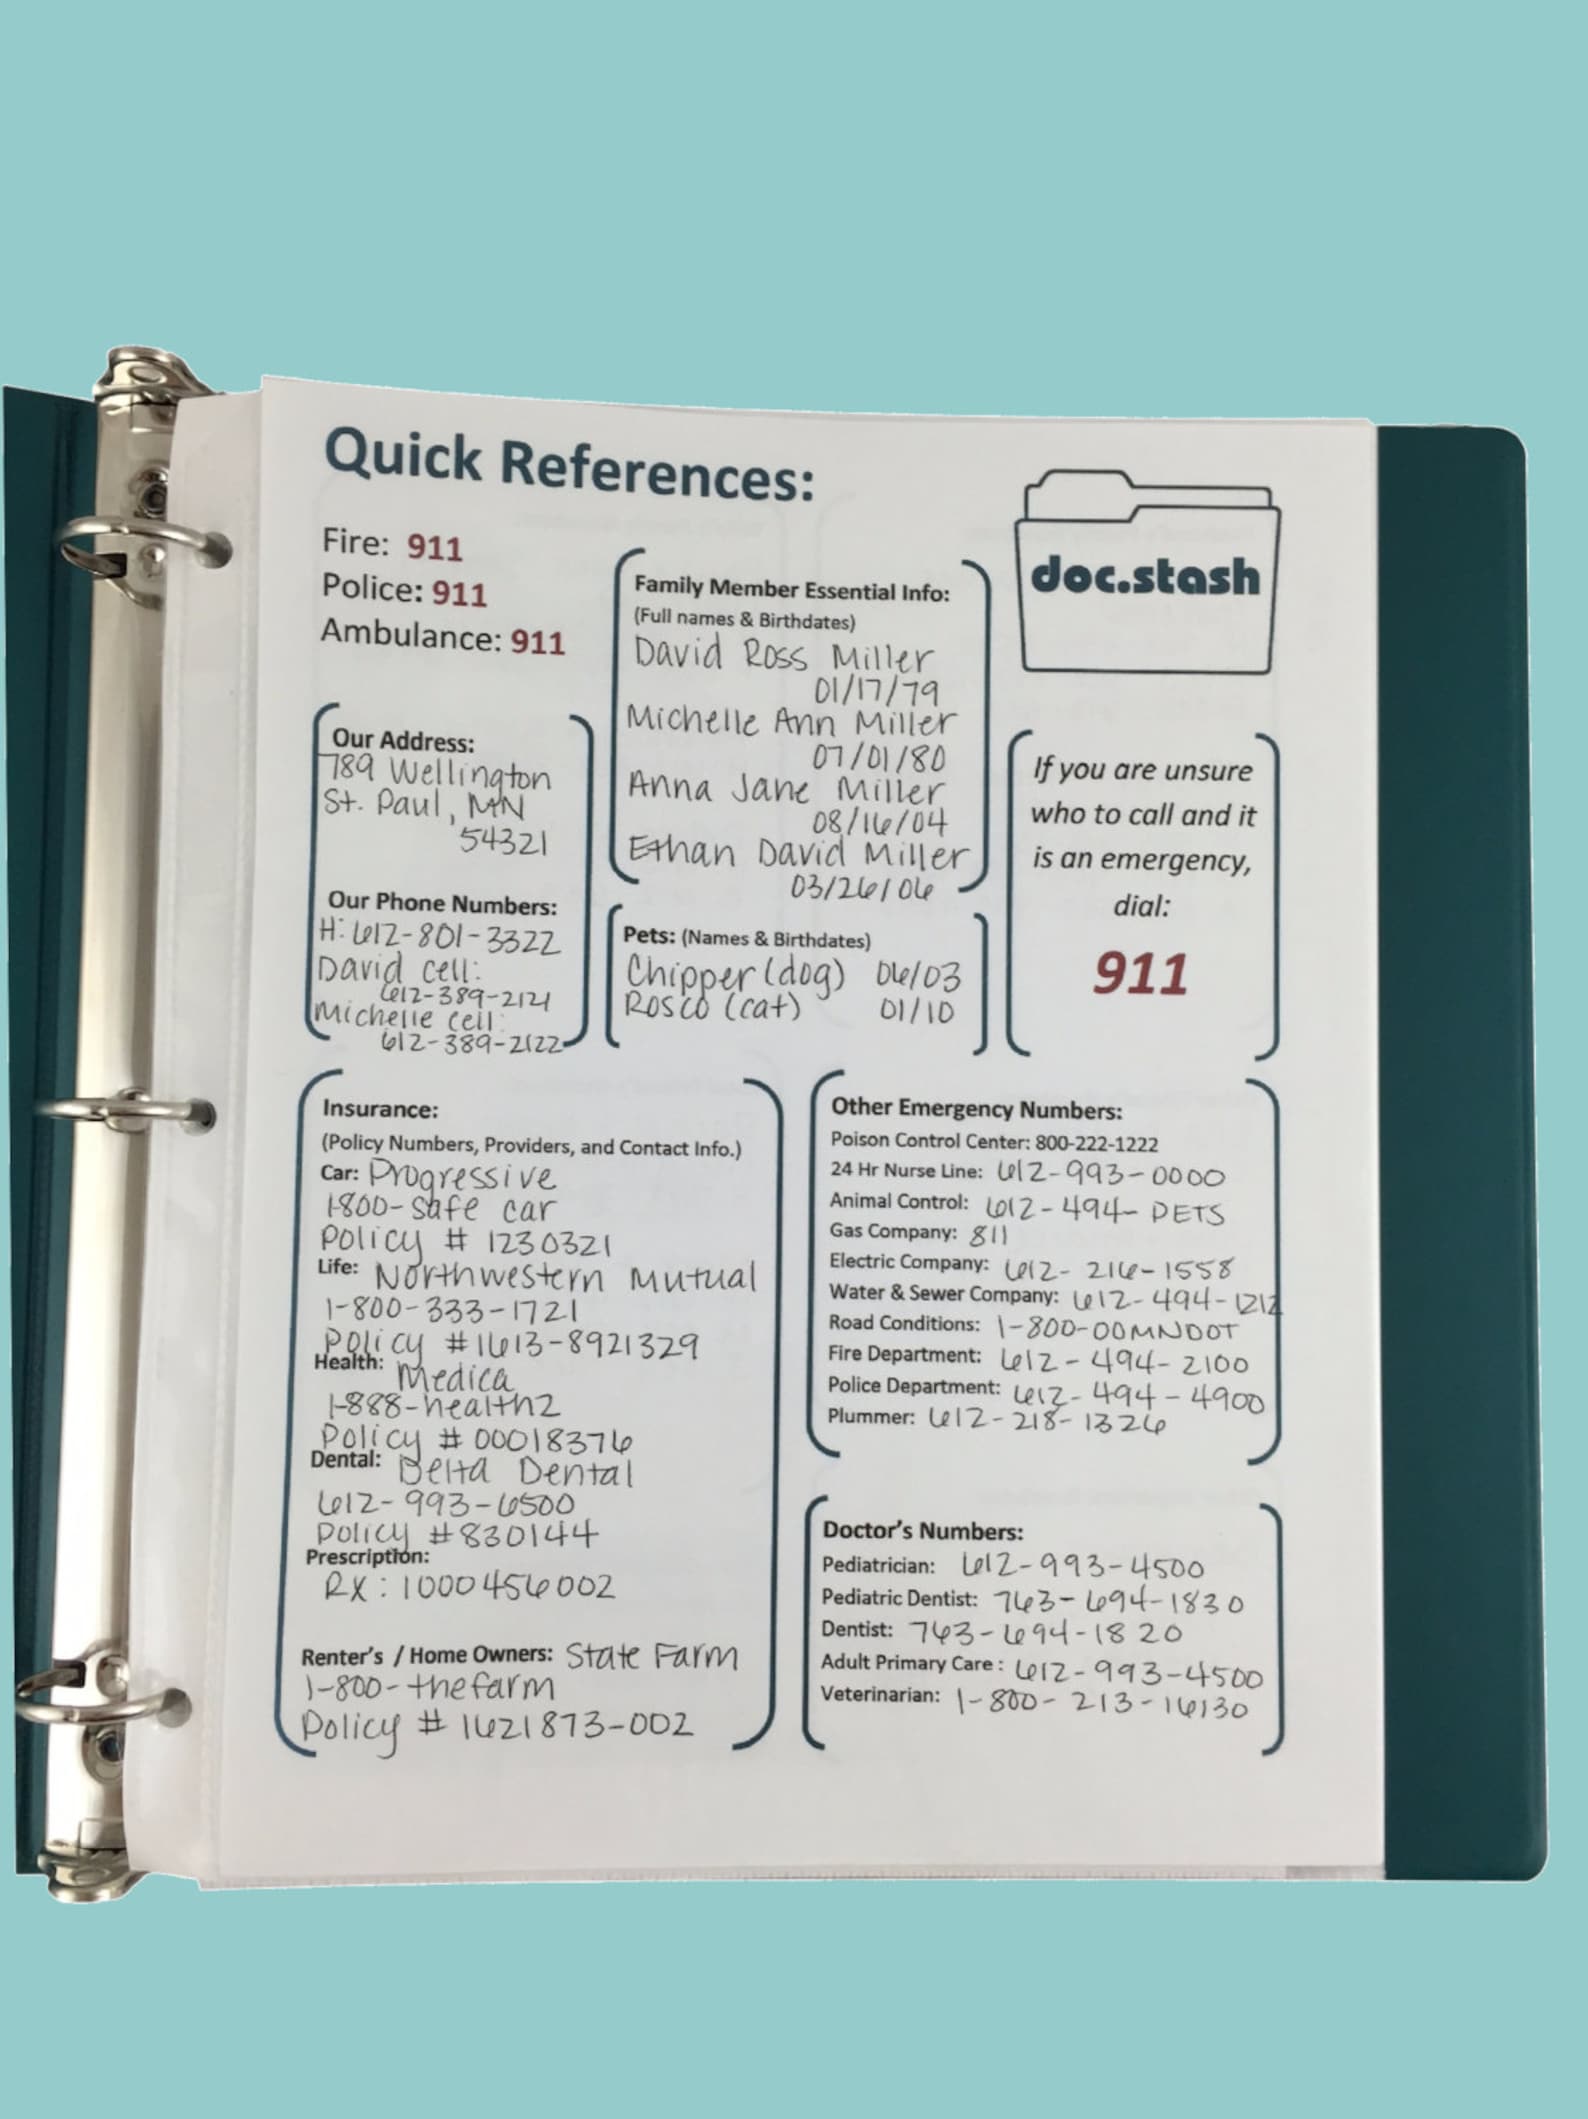 Quick References:
doc.stash
Fire: 911
Police: 911
Ambulance: 911
Family Member Essential Info:
(Full names & Birthdates)
David Ross Miller
01/17/79
Michelle Ann Miller
07/01/80
Anna Jane Miller
08/16/04
Ethan David Miller
03/26/06
Our Address:
789 Wellington
St. Paul, MN
54321
Our Phone Numbers:
H: 612-801-3322
David cell:
612-389-2121
Michelle cell:
612-389-2122
Pets: (Names & Birthdates)
Chipper (dog) 06/03
Rosco (cat) 01/10
If you are unsure
who to call and it
is an emergency,
dial:
911
Insurance:
(Policy Numbers, Providers, and Contact Info.)
Car: Progressive
1-800-safe car
Policy # 1230321
Life: Northwestern Mutual
1-800-333-1721
Policy #1613-8921329
Health: Medica
1-888-health2
Policy # 00018376
Dental: Delta Dental
612-993-6500
Policy #830144
Prescription:
RX: 1000456002
Renter's / Home Owners: State Farm
1-800-thefarm
Policy # 1621873-002
Other Emergency Numbers:
Poison Control Center: 800-222-1222
24 Hr Nurse Line: 612-993-0000
Animal Control: 612-494-PETS
Gas Company: 811
Electric Company: 612-216-1558
Water & Sewer Company: 612-494-1212
Road Conditions: 1-800-00MNDOT
Fire Department: 612-494-2100
Police Department: 612-494-4900
Plummer: 612-218-1326
Doctor's Numbers:
Pediatrician: 612-993-4500
Pediatric Dentist: 763-694-1830
Dentist: 763-694-1820
Adult Primary Care : 612-993-4500
Veterinarian: 1-800-213-16130